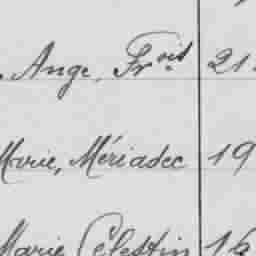 Ange, Frois 21
Marie, Mériadec 19
Marie Celestin 16